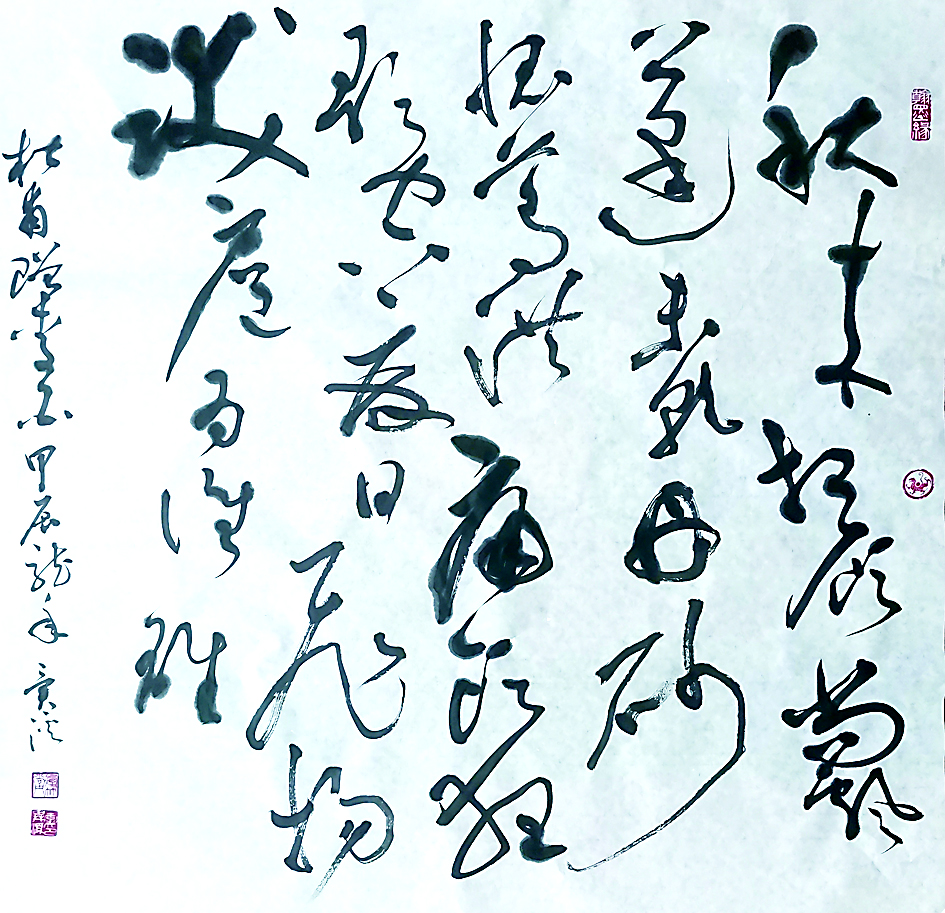 翰墨缘
秋来相顾尚飘
蓬未就丹砂
愧葛洪痛饮狂
歌空度日飞扬
跋扈为谁雄
杜甫赠李白甲辰龙年